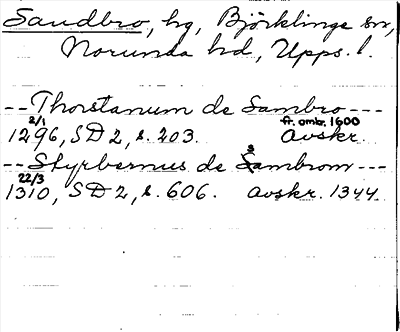 Sandbro, hg, Björklinge sn,
Norunda hd, Upps. l.
--Thorstanum de Sambro---
2/1 fr. omkr. 1600
1296, SD 2, s. 203. Avskr.
--Styrbernus de Sambrom---
22/3
1310, SD 2, s. 606. Avskr. 1344